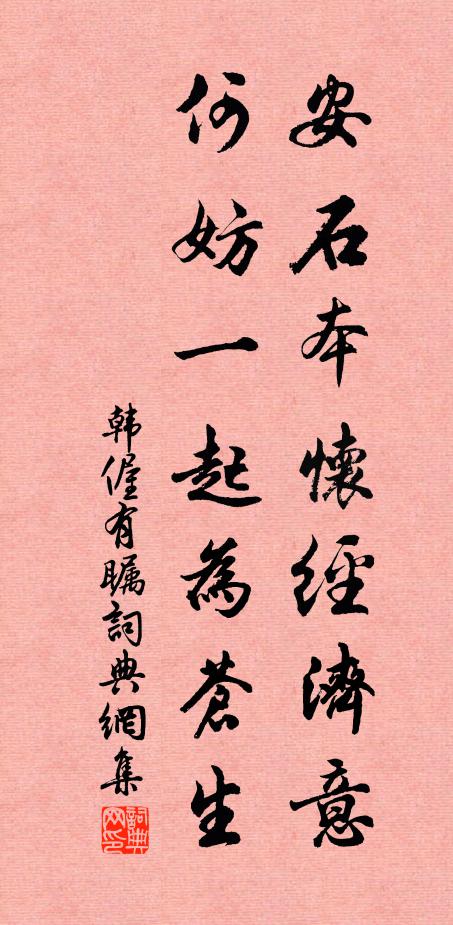 安石本懷經濟意
何妨一起為蒼生
韩偓有瞩詞典網集
詞典网印